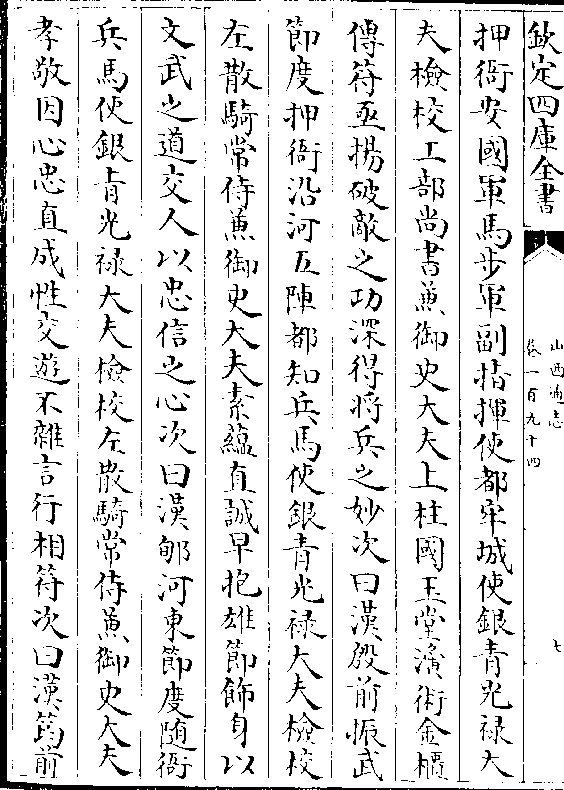 欽定四庫全書
山西通志
卷一百九十四
七
押衙安國軍馬步軍副指揮使都牢城使銀青光禄大
夫檢校工部尚書兼御史大夫上柱國玉堂演術金櫃
傳符亟揚破敵之功深得將兵之妙次曰漢殷前振武
節度押衙沿河五陣都知兵馬使銀青光禄大夫檢校
左散騎常侍兼御史大夫素蘊直誠早抱雄節飾身以
文武之道交人以忠信之心次曰漢郇河東節度隨衙
兵馬使銀青光禄大夫檢校左散騎常侍兼御史大夫
孝敬因心忠直成性交遊不雜言行相符次曰漢筠前